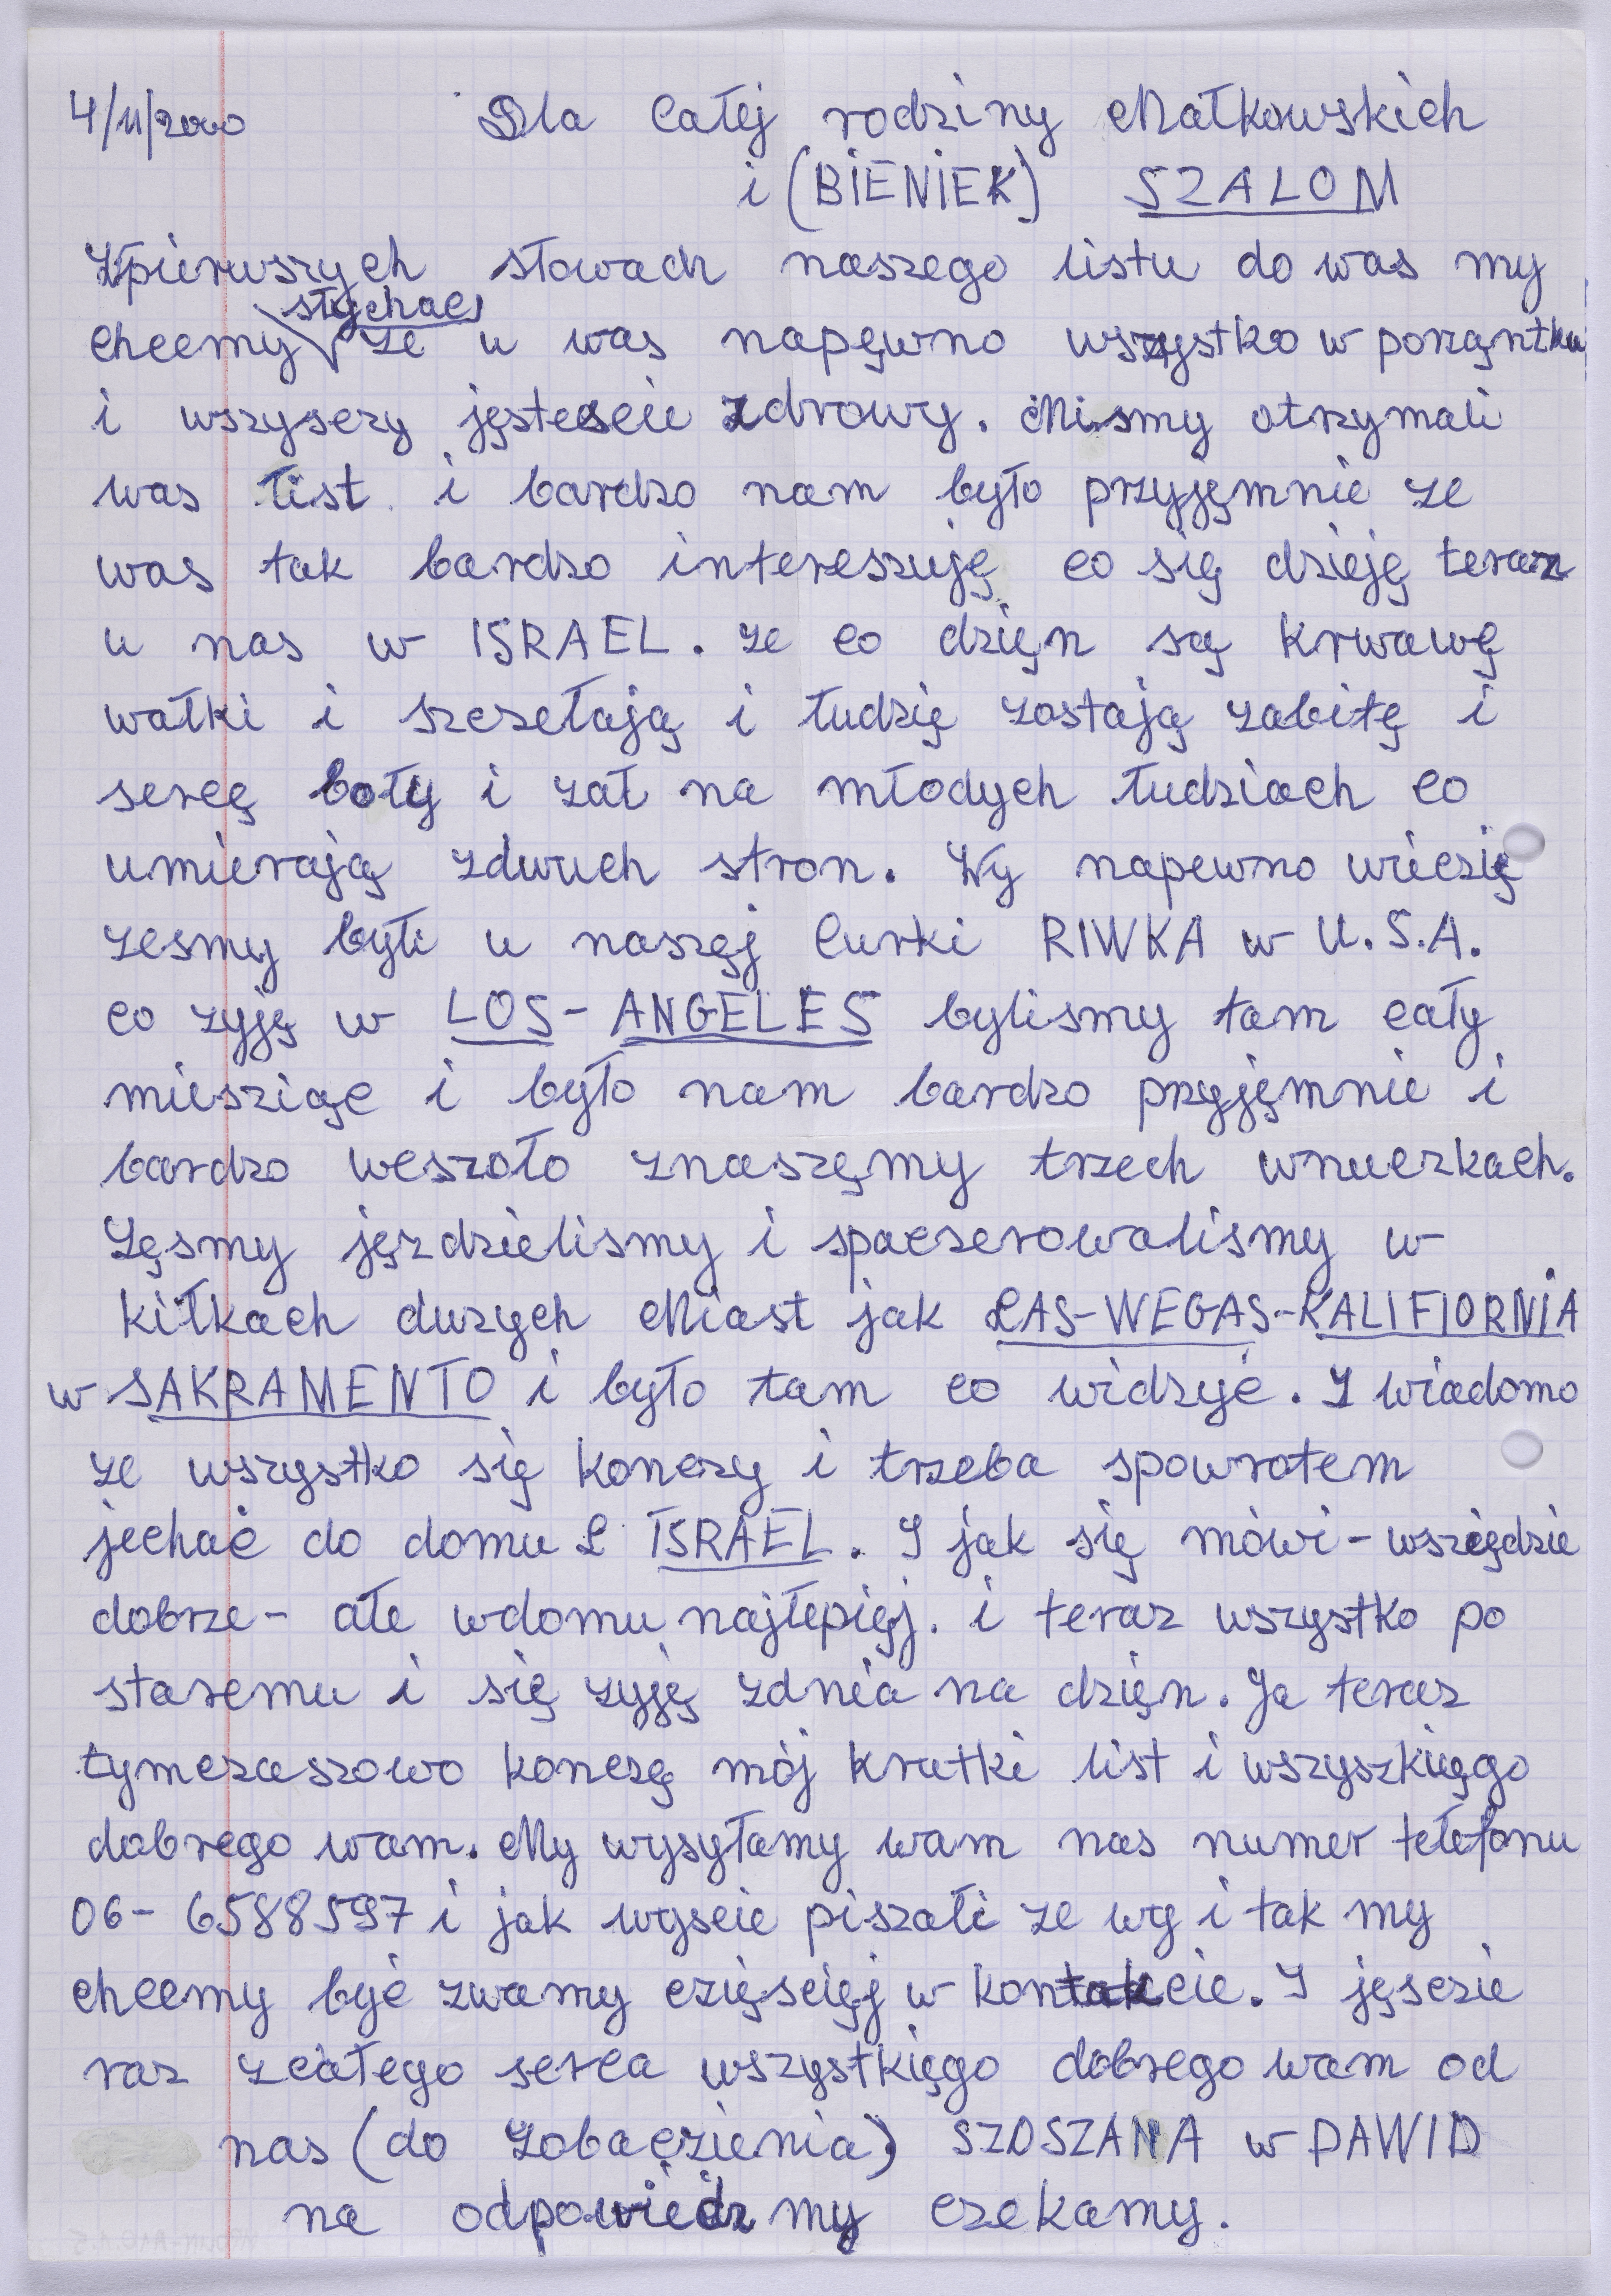 4/11/2000 Dla Całej rodziny Małkowskich
i (BIENIEK) SZALOM
Wpierwszych słowach naszego listu do was my
słychać
chcemy ze u was napęwno wszystko w porząntku
i wszysczy jęstescie zdrowy. Mismy otrzymali
was list i bardzo nam było przyjęmnie ze
was tak bardzo intereszuję co się dzieję teraz
u nas w ISRAEL. ze co dzięn są krwawę
wałki i szczełają i łudzię zostają zabitę i
sercę boły i zał na młodych łudziach co
umierają zdwuch stron. Wy napewno wieczię
zesmy byłi u naszęj Curki RIWKA w U.S.A.
co zyję w LOS-ANGELES bylismy tam cały
miesziąc i było nam bardzo przyjęmnie i
bardzo weszoło znaszęmy trzech wnuczkach.
Zęsmy jęzdzielismy i spaczerowalismy w
kiłkach duzych Miast jak LAS-WEGAS-KALIFIORNIA
w SAKRAMENTO i było tam co widzyć. I wiadomo
ze wszystko się konczy i trzeba spowrotem
jechać do domu L ISRAEL. I jak się mówi - wsziędzie
dobrze - ałe wdomu najłepięj. i teraz wszystko po
staremu i się zyję zdnia na dzięn. Ja teraz
tymczaszowo konczę mój krutki list i wszyszkięgo
dobrego wam. My wysyłamy wam nas numer tełefonu
06-6588597 i jak wyscie piszałi ze wy i tak my
chcemy być zwamy czięscięj w kontakcie. I jęsczie
raz zcałego serca wszystkięgo dobrego wam od
nas (do zobaczienia) SZOSZANA w DAWID
na odpowiedz my czekamy.